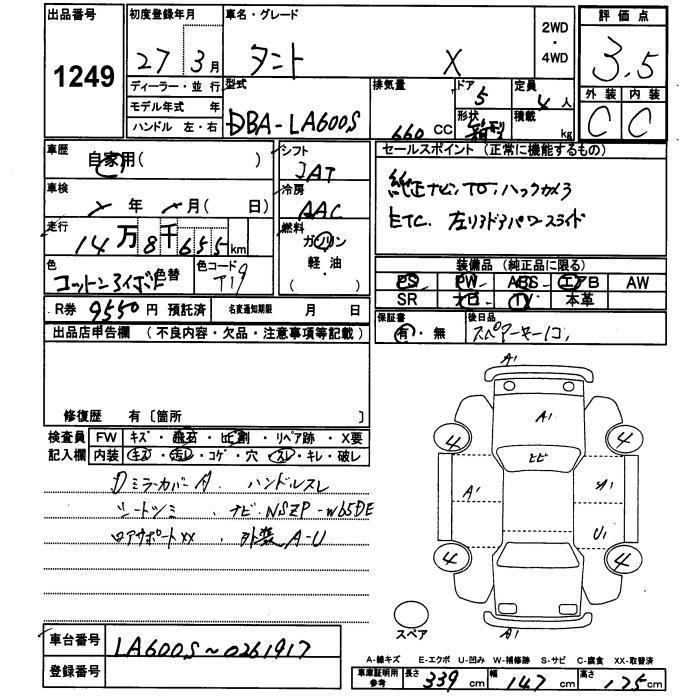 出品番号
1249
初度登録年月
27 3月
ディーラー・並行
モデル年式 年
ハンドル 左・右
車名・グレード
タント X
2WD
・
4WD
型式
DBA-LA600S
排気量
660 CC
ドア
5
形状
箱形
定員
4人
積載
kg
評価点
3.5
外装 内装
C C
車歴
自家用( )
車検
年 月( 日)
走行
14万8千655km
色
コットンアイボE
色替
色コード
T19
シフト
IAT
冷房
AAC
燃料
ガソリン
軽・油
( )
セールスポイント (正常に機能するもの)
純正ナビ,TV,バックカメラ
ETC. 左リアドアパワースライド
装備品 (純正品に限る)
PS PW ABS エアB AW
SR ナビ TV 本革
R券 9550円 預託済
名変通知期限 月 日
保証書
有・無
後日品
スペアーキー1コ,
出品店申告欄 (不良内容・欠品・注意事項等記載)
修復歴 有〔箇所 〕
検査員
記入欄
FW キズ・飛石・ヒビ割・リペア跡・X要
内装 キズ・汚レ・コゲ・穴・スレ・キレ・破レ
DミラーカバーA ハンドルスレ
シートシミ 、ナビNSZP-W65DE
ロアサポートXX 、外装A-U
A1
A1
ヒビ
4 4
A1 A1
U1
4 4
A1
スペア
車台番号
LA600S~0261917
登録番号
A-線キズ E-エクボ U-凹み W-補修跡 S-サビ C-腐食 XX-取替済
車庫証明用
参考
長さ 339cm 幅 147cm 高さ 175cm